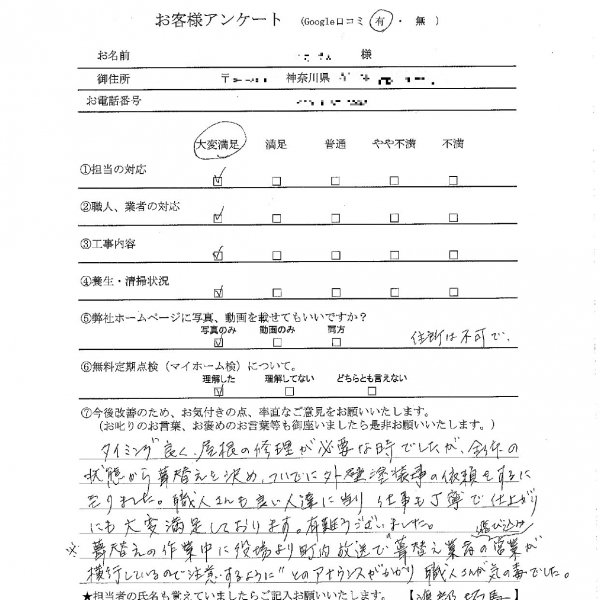 お客様アンケート (Google口コミ 有・無)
お名前 様
御住所 〒 神奈川県
お電話番号
大変満足 満足 普通 やや不満 不満
①担当の対応
②職人、業者の対応
③工事内容
④養生・清掃状況
⑤弊社ホームページに写真、動画を載せてもいいですか?
写真のみ 動画のみ 両方
住所は不可で、
⑥無料定期点検(マイホーム検)について。
理解した 理解してない どちらとも言えない
⑦今後改善のため、お気付きの点、率直なご意見をお願いいたします。
(お叱りのお言葉、お褒めのお言葉等も御座いましたら是非お願いします。)
タイミング良く、屋根の修理が必要な時でしたが、全体の
状態から葺替えを決め、ついでに外壁塗装等の依頼をするに
至りました。職人さんも良い人達に当り 仕事も丁寧で仕上がり
にも大変満足しております。有難うございました。
飛び込み
※ 葺替えの作業中に役場より町内放送で"葺替え業者の営業が
横行しているので注意するように"とのアナウンスがかかり 職人さんが気の毒でした。
★担当者の氏名も覚えていましたらご記入お願いいたします。